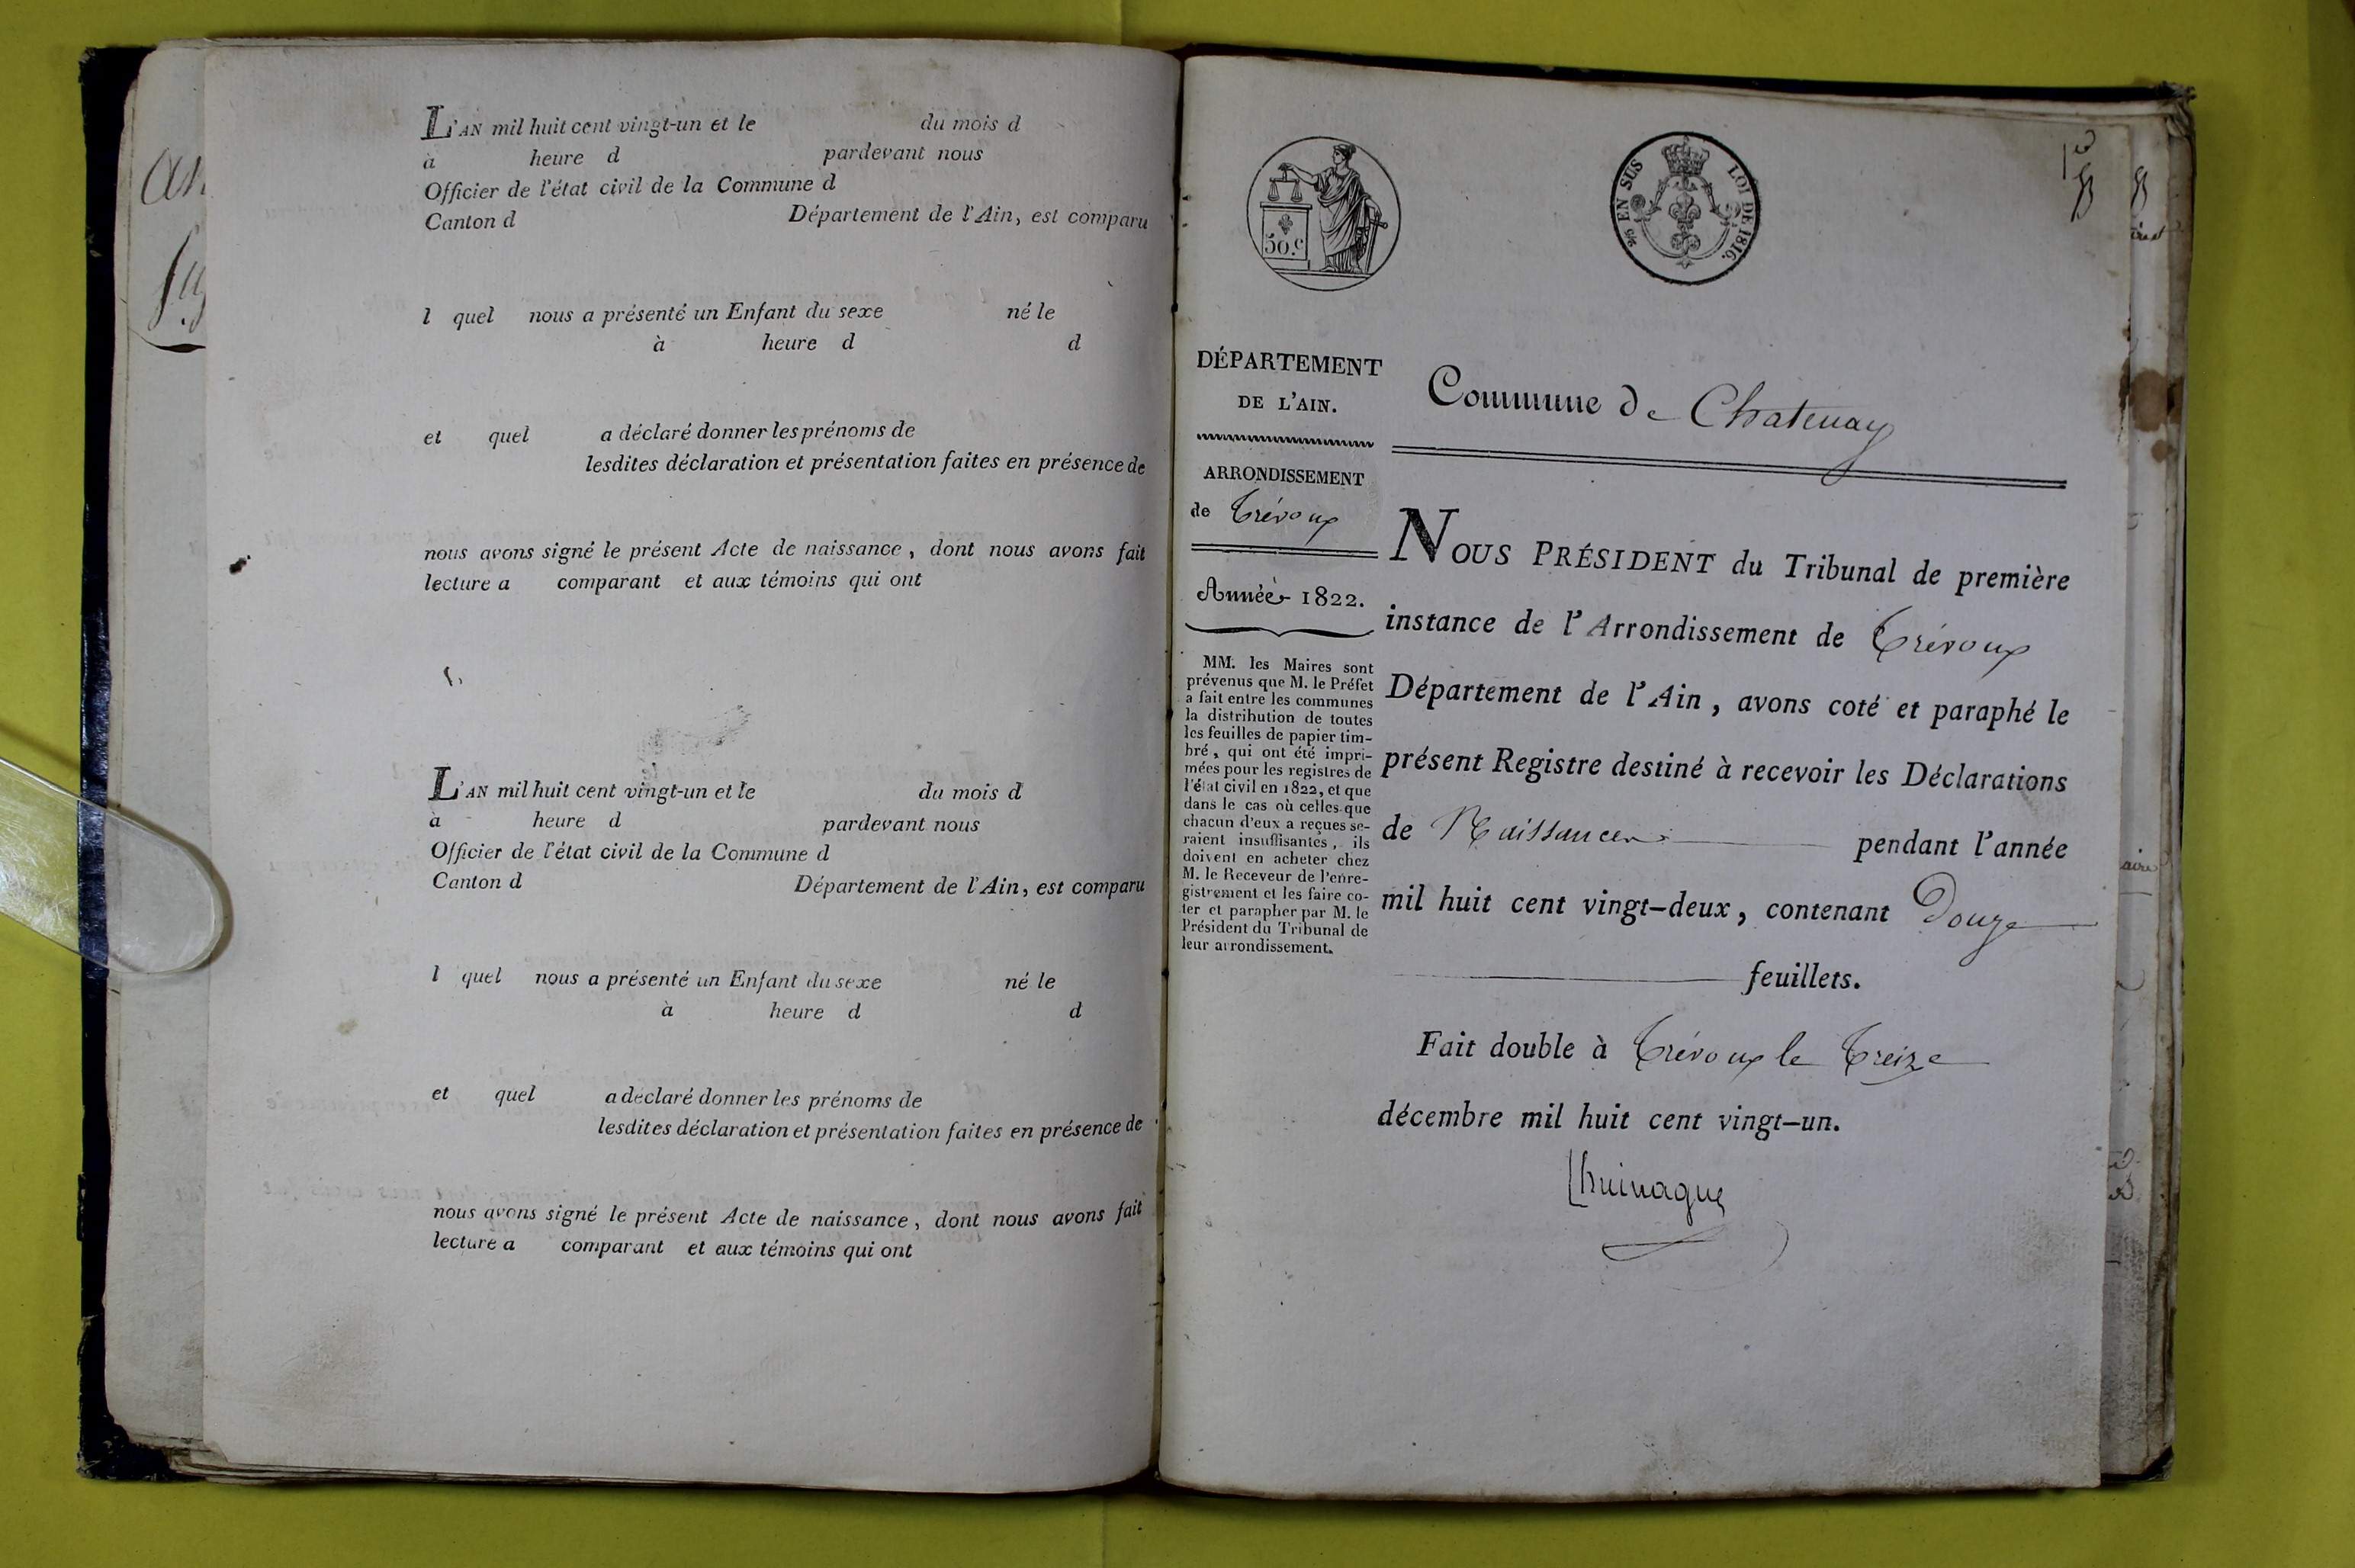 L'AN mil huit cent vingt-un et le du mois d
à heure d pardevant nous
Officier de l'état civil de la Commune d
Canton d Département de l'Ain, est comparu
l quel nous a présenté un Enfant du sexe né le
à heure d d
et quel a déclaré donner les prénoms de
lesdites déclaration et présentation faites en présence de
nous avons signé le présent Acte de naissance, dont nous avons fait
lecture a comparant et aux témoins qui ont
L'AN mil huit cent vingt-un et le du mois d
à heure d pardevant nous
Officier de l'état civil de la Commune d
Canton d Département de l'Ain, est comparu
l quel nous a présenté un Enfant du sexe né le
à heure d d
et quel a déclaré donner les prénoms de
lesdites déclaration et présentation faites en présence de
nous avons signé le présent Acte de naissance, dont nous avons fait
lecture a comparant et aux témoins qui ont
50.c
EN SUS
LOI DE 1816.
DÉPARTEMENT
DE L'AIN.
ARRONDISSEMENT
de Trévoux
Année 1822.
MM. les Maires sont
prévenus que M. le Préfet
a fait entre les communes
la distribution de toutes
les feuilles de papier tim-
bré, qui ont été impri-
mées pour les registres de
l'état civil en 1822, et que
dans le cas où celles que
chacun d'eux a reçues se-
raient insuffisantes, ils
doivent en acheter chez
M. le Receveur de l'enre-
gistrement et les faire co-
ter et parapher par M. le
Président du Tribunal de
leur arrondissement.
Commune de Chatenay
NOUS PRÉSIDENT du Tribunal de première
instance de l'Arrondissement de Trévoux
Département de l'Ain, avons coté et paraphé le
présent Registre destiné à recevoir les Déclarations
de Naissances pendant l'année
mil huit cent vingt-deux, contenant Douze
feuillets.
Fait double à Trévoux le Treize
décembre mil huit cent vingt-un.